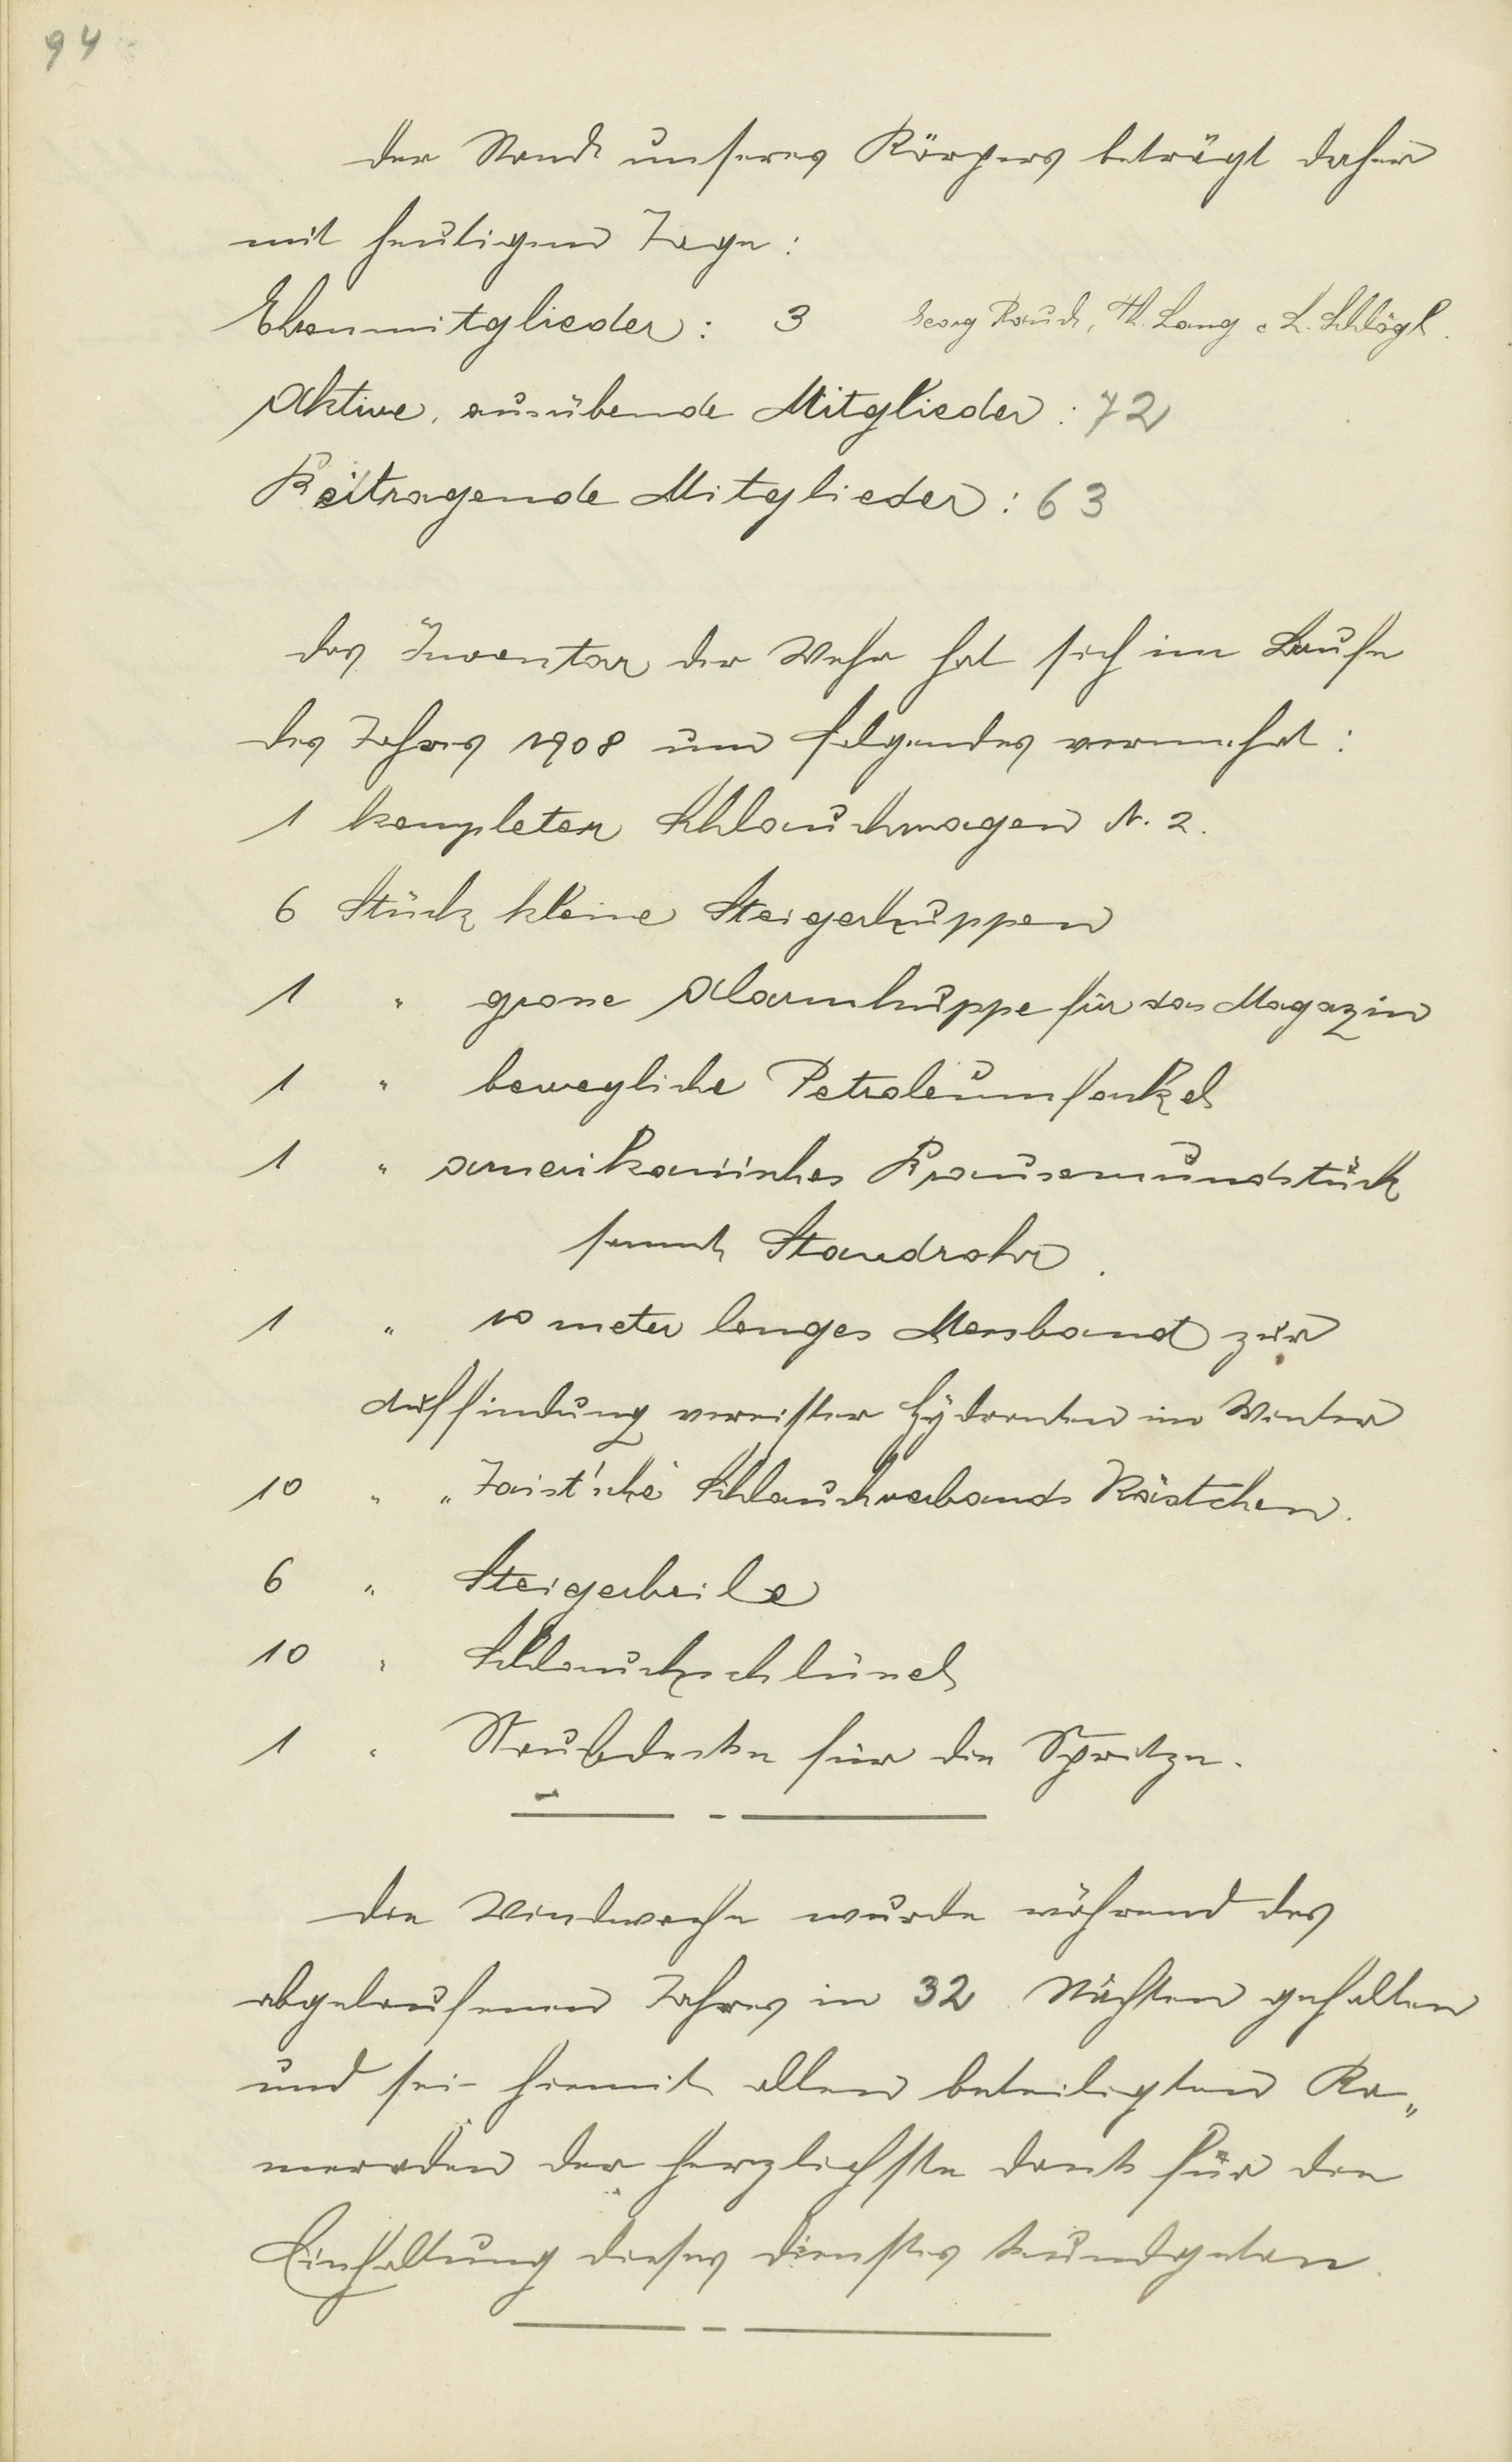 94
Der Stand unseres Körpers beträgt daher
mit heutigem Tage:
Ehrenmitglieder: 3 Georg Rauch, Th. Lang, L. Schlögl.
Aktive, ausübende Mitglieder: 72
Beitragende Mitglieder: 63
Das Inventar der Wehr hat sich im Laufe
des Jahres 1908 um folgendes vermehrt:
1 kompleten Schlauchwagen N. 2.
6 Stück kleine Steigerhuppen
1 " grosse Alarmhuppe für das Magazin
1 " bewegliche Petroleumfankel
1 " amerikanisches Brausemundstück
sammt Standrohr.
1 " 10 meter langes Messband zur
Auffindung vereister Hydranten im Winter
10 " " Zaist'sche Schlauchverbands Kästchen.
6 " Steigerbeile
10 " Schlauchschlüssel
1 " Staubdecke für die Spritze.
Die Windwache wurde während des
abgelaufenen Jahres in 32 Nächten gehalten
und sei hiemit allen beteiligten Ka„
meraden der herzlichste Dank für die
Einhaltung dieses Dienstes kundgetan.